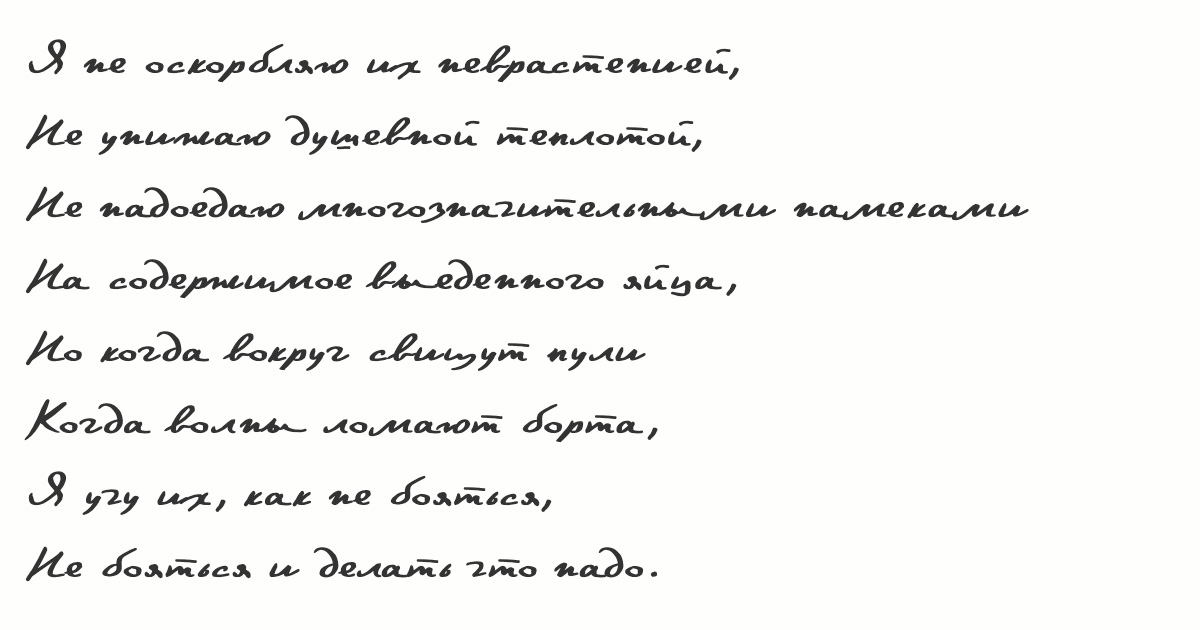 Я не оскорбляю их неврастенией,
Не унижаю душевной теплотой,
Не надоедаю многозначительными намеками
На содержимое выеденного яйца,
Но когда вокруг свищут пули
Когда волны ломают борта,
Я учу их, как не бояться,
Не бояться и делать что надо.